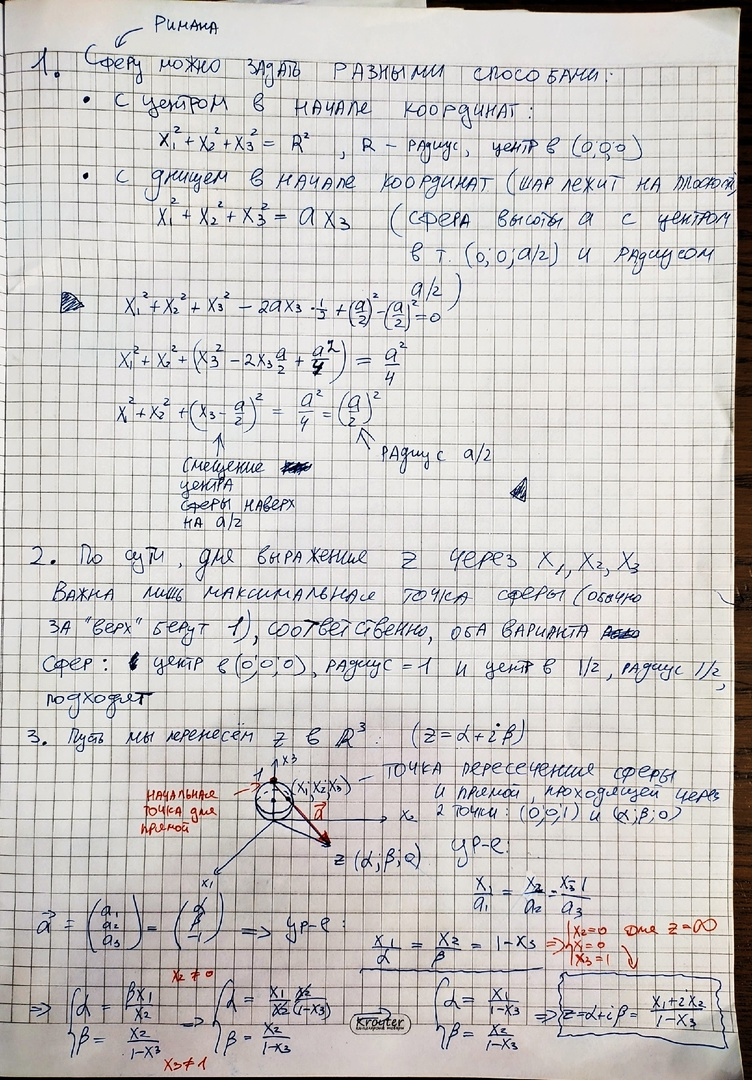 Римана
1. Сферу можно задать разными способами:
• С центром в начале координат:
x₁² + x₂² + x₃² = R², R – радиус, центр в (0,0,0)
• С днищем в начале координат (шар лежит на плоскости)
x₁² + x₂² + x₃² = a x₃ (сфера высоты a с центром
в т. (0;0;a/2) и радиусом
a/2)
x₁² + x₂² + x₃² – 2ax₃·1/2 + (a/2)² – (a/2)² = 0
x₁² + x₂² + (x₃² – 2x₃ a/2 + a²/4) = a²/4
x₁² + x₂² + (x₃ – a/2)² = a²/4 = (a/2)²
радиус a/2
Смещение
центра
сферы наверх
на a/2
2. По сути, для выражения z через x₁, x₂, x₃
важна лишь максимальная точка сферы (обычно
за "верх" берут 1), соответственно, оба варианта
сфер: центр в (0;0;0), радиус = 1 и центр в 1/2, радиус 1/2,
подходят
3. Пусть мы перенесём z в R³: (z = α + iβ)
x₃
1 (x₁;x₂;x₃) – точка пересечения сферы
начальная и прямой, проходящей через
точка для a⃗ x₂ 2 точки: (0;0;1) и (α;β;0)
прямой
z (α;β;0) ур-е:
x₁
x₁/a₁ = x₂/a₂ = x₃-1/a₃
a⃗ = (a₁ a₂ a₃) = (α β -1) => ур-е: x₁/α = x₂/β = 1-x₃ => {x₂=0 x₁=0 x₃=1 для z=∞
x₂ ≠ 0
=> {α = βx₁/x₂ β = x₂/1-x₃ => {α = x₁/x₂ x₂/(1-x₃) β = x₂/1-x₃ {α = x₁/1-x₃ β = x₂/1-x₃ => z=α+iβ = x₁+ix₂/1-x₃
x₃≠1
Kroyter